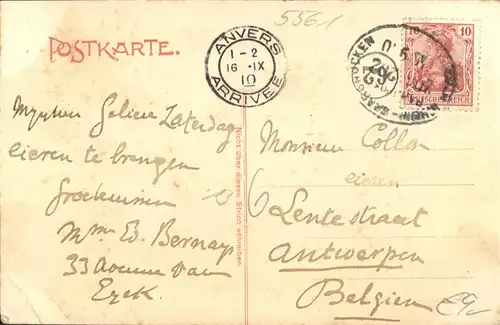 5561
POSTKARTE.
ANVERS
1-2
16 IX
10
ARRIVÉE
10
DEUTSCHES REICH
SAARBRÜCKEN
Mijnheer Gelieve Zaterdag
eieren te brengen
Mme Ed. Bernays
33 Avenue van
Eyck.
Nicht über diesen Strich schreiben.
Monsieur Collon
eieren
6 Lentestraat
Antwerpen
Belgien